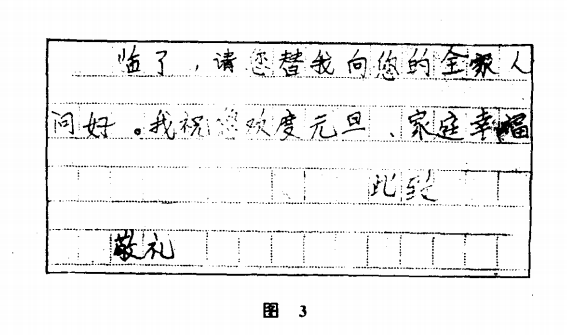 临了，请您替我向您的全家人
问好。我祝您欢度元旦、家庭幸福
此致
敬礼
图 3